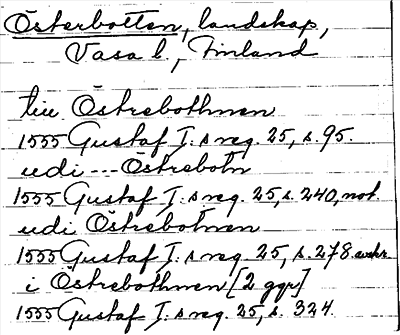 Österbotten, landskap,
Vasa l., Finland
till Östrebothnen
1555 Gustaf I:s reg. 25, s. 95.
udi --- Östrebotn
1555 Gustaf I:s reg. 25, s. 240, not.
udi Östrebotnen
1555 Gustaf I:s reg. 25, s. 278
i Östrebothnen [2 ggr]
1555 Gustaf I:s reg. 25, s. 324.